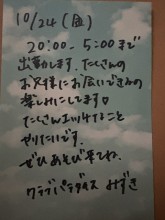 10/24(金)
20:00-5:00まで
出勤します。たくさんの
お兄様にお会いできるの
楽しみにしてます♡
たくさんエッチなこと
やりたいです。
ぜひあそびきてね。
クラブパラダイス みずき